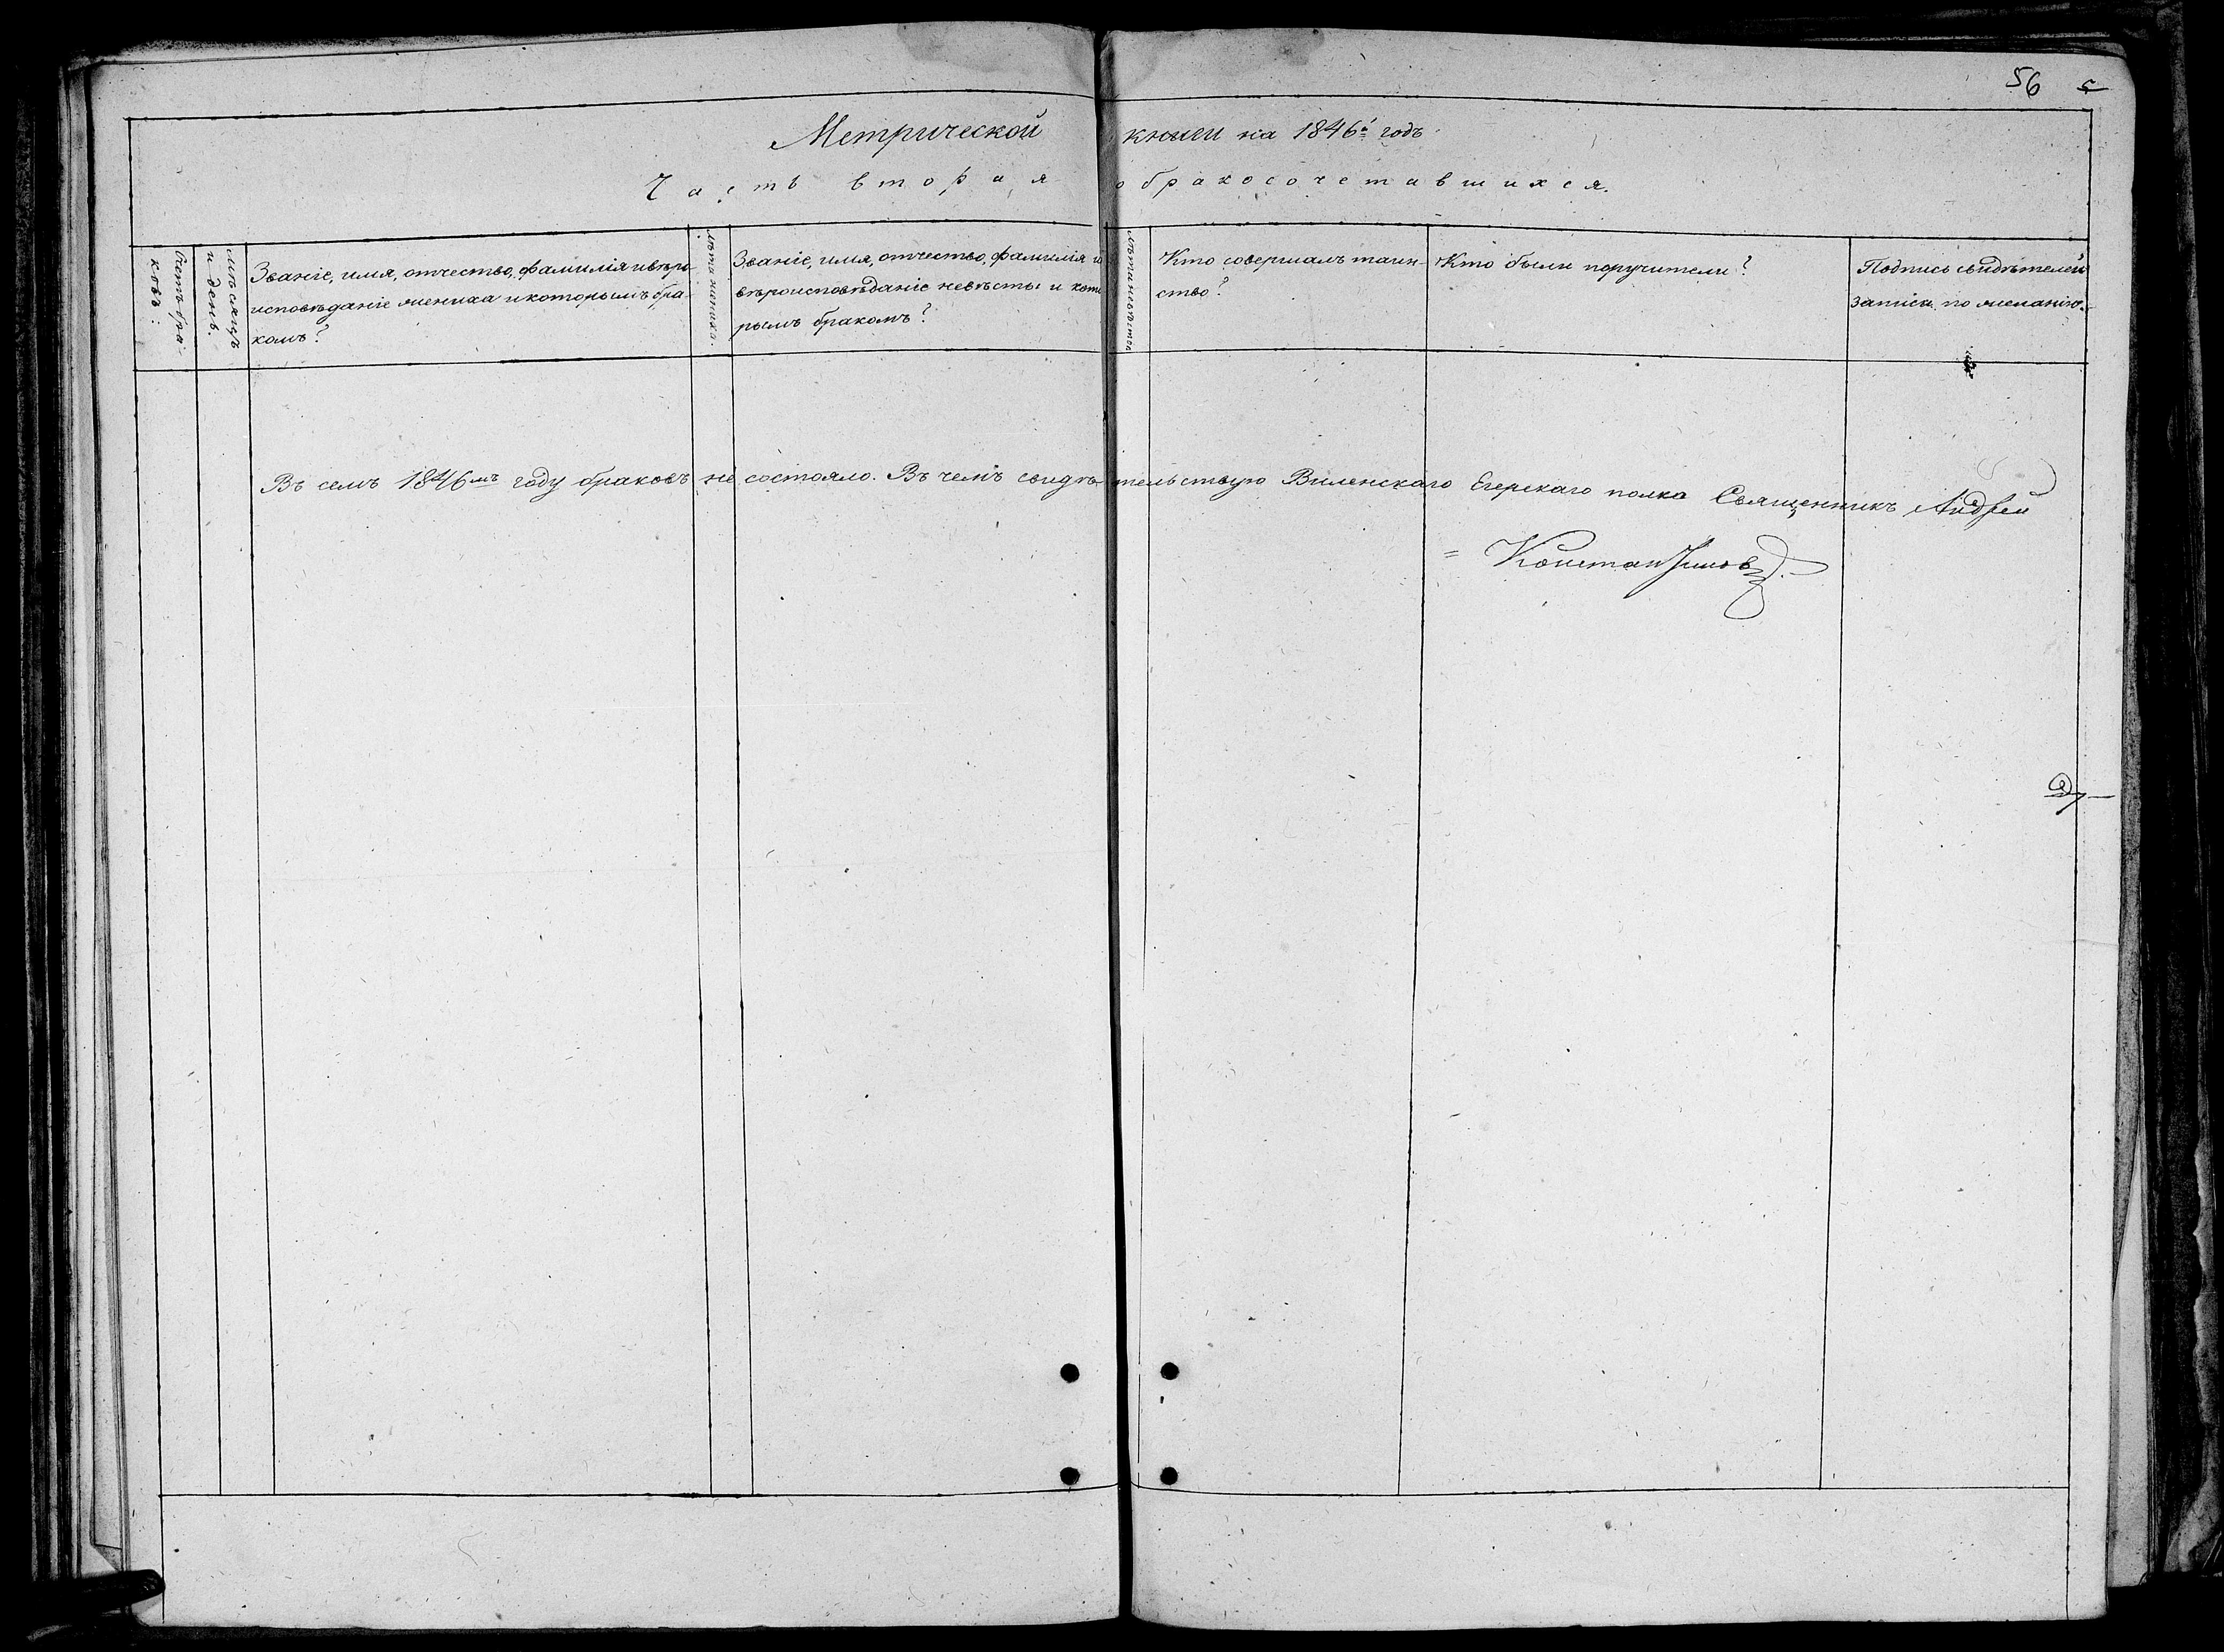 56
Метрической книги на 1846й годъ
Часть вторая о бракосочетавшихся.
Счетъ браковъ:
мѣсяцъ и день.
Званіе, имя, отчество, фамилія и вѣро-
исповѣданіе жениха и которымъ бра-
комъ?
Лѣта жениха.
Званіе, имя, отчество, фамилія и
вѣроисповѣданіе невѣсты и кото
рымъ бракомъ?
Лѣта невѣсты
Кто совершалъ таин-
ство?
Кто были поручители?
Подпись свидѣтелей
записи по желанію.
Въ семъ 1846мъ году браковъ не состояло. Въ чемъ свидѣтельствую Виленскаго Егерскаго полка Священникъ Андрей
= Константиновъ.